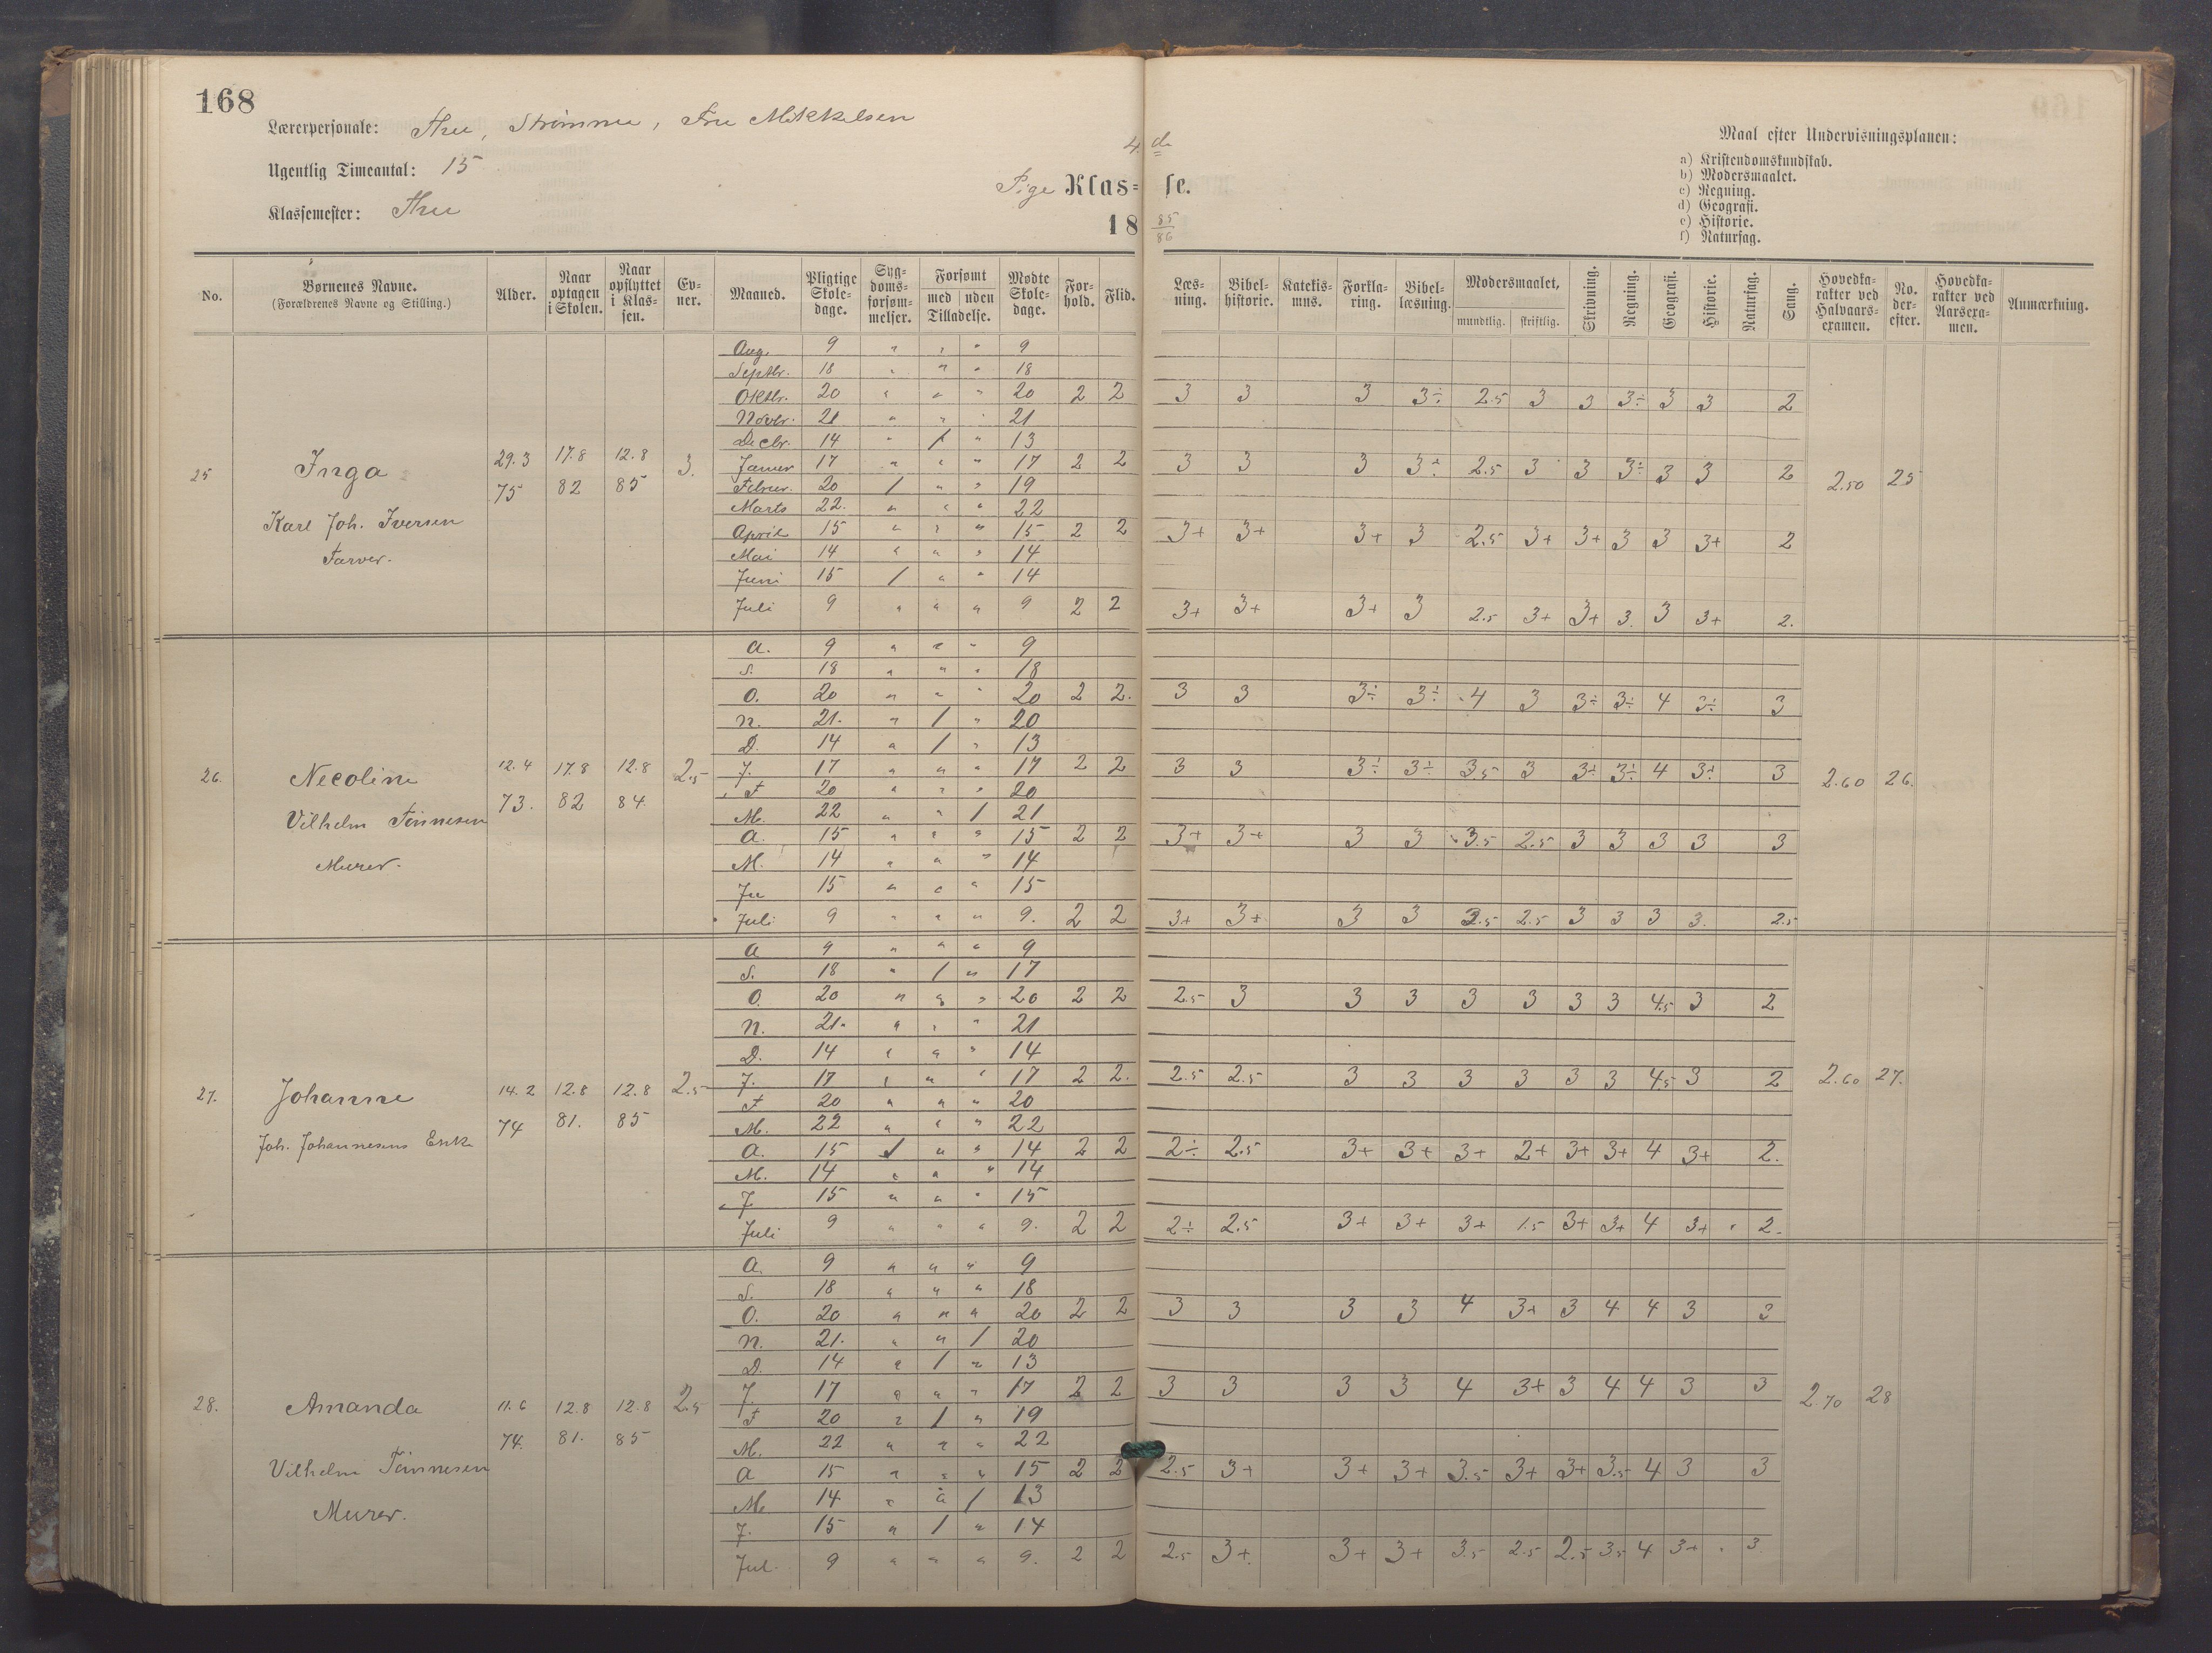 168
Lærerpersonale: Thu, Strömme, Fru Mikkelsen
Ugentlig Timeantal: 15
Klassemester: Thu
4de
Pige Klasse.
1885/86
Maal efter Undervisningsplanen:
a) Kristendomskundskab.
b) Modersmaalet.
c) Regning.
d) Geografi.
e) Historie.
f) Naturfag.
No. | Børnenes Navne. (Forældrenes Navne og Stilling.) | Alder. | Naar optagen i Skolen. | Naar opflyttet i Klassen. | Evner. | Maaned. | Pligtige Skoledage. | Sygdomsforsømmelser. | Forsømt med / uden Tilladelse. | Mødte Skoledage. | Forhold. | Flid. | Læsning. | Bibelhistorie. | Katekismus. | Forklaring. | Bibellæsning. | Modersmaalet, mundtlig. skriftlig. | Skrivning. | Regning. | Geografi. | Historie. | Naturfag. | Sang. | Hovedkarakter ved Halvaarsexamen. | No. derefter. | Hovedkarakter ved Aarsexamen. | Anmærkning.
25 Inga Karl Joh. Iversen Farver. 29.3 75 17.8 82 12.8 85 3. 2.50 25
Aug. 9 " " " 9
Septbr. 18 " " " 18
Oktbr. 20 " " " 20 2 2 3 3 3 3÷ 2.5 3 3 3÷ 3 3 2
Novbr. 21 " " " 21
Decbr. 14 " / " 13
Januar 17 " " " 17 2 2 3 3 3 3÷ 2.5 3 3 3÷ 3 3 2
Februar. 20 / " " 19
Marts 22. " " " 22
April 15 " " " 15 2 2 3+ 3+ 3+ 3 2.5 3+ 3+ 3 3 3+ 2
Mai 14 " " " 14
Juni 15 / " " 14
Juli 9 " " " 9 2 2 3+ 3+ 3+ 3 2.5 3+ 3+ 3. 3 3+ 2.
26. Necoline Vilhelm Tönnesen Murer. 12.4 73. 17.8 82 12.8 84. 2.5 2.60 26.
A. 9 " " " 9
S. 18 " " " 18
O. 20 " " " 20 2 2. 3 3 3÷ 3÷ 4 3 3÷ 3÷ 4 3÷ 3
N. 21. " / " 20
D. 14 " / " 13
J. 17 " " " 17 2 2 3 3 3÷ 3÷ 3.5 3 3÷ 3÷ 4 3÷ 3
F 20 " " " 20
M. 22 " " / 21
A. 15 " " " 15 2 2 3+ 3+ 3 3 3.5 2.5 3 3 3 3 3
M. 14 " " " 14
Ju 15 " " " 15
Juli 9 " " " 9. 2 2 3+ 3+ 3 3 2.5 3 3 3 3. 2.5
27. Johanne Joh. Johannesens Enke 14.2 74 12.8 81. 12.8 85 2.5 2.60 27.
A 9 " " " 9
S. 18 " / " 17
O. 20 " " " 20 2 2 2.5 3 3 3 3 3 3 3 4.5 3 2
N. 21. " " " 21
D. 14 " " " 14
J. 17 " " " 17 2 2. 2.5 2.5 3 3 3 3 3 3 4.5 3 2
F 20 " " " 20
M. 22 " " " 22
A. 15 / " " 14 2 2 2÷ 2.5 3+ 3+ 3+ 2+ 3+ 3+ 4 3+ 2.
M. 14 " " " 14
J 15 " " " 15
Juli 9 " " " 9. 2 2 2÷ 2.5 3+ 3+ 3+ 1.5 3+ 3+ 4 3+ 2.
28. Amanda Vilhelm Tönnesen Murer. 11.6 74. 12.8 81. 12.8 85 2.5 2.70 28
A. 9 " " " 9
S. 18 " " " 18
O. 20 " " " 20 2 2 3 3 3 3 4 3+ 3 4 4 3 3
N. 21. " " / 20
D. 14 " / " 13
J. 17 " " " 17 2 2 3 3 3 3 4 3+ 3 4 4 3 3
F 20 " / " 19
M. 22 " " " 22
A 15 " " " 15 2 2 2.5 3+ 3+ 3+ 3.5 3+ 3+ 3.5 4 3 3
M. 14 " " / 13
J. 15 " / " 14
Jul. 9 " " " 9. 2 2 2.5 3+ 3+ 3+ 3.5 2.5 2.5 3.5 4 3+ 3.